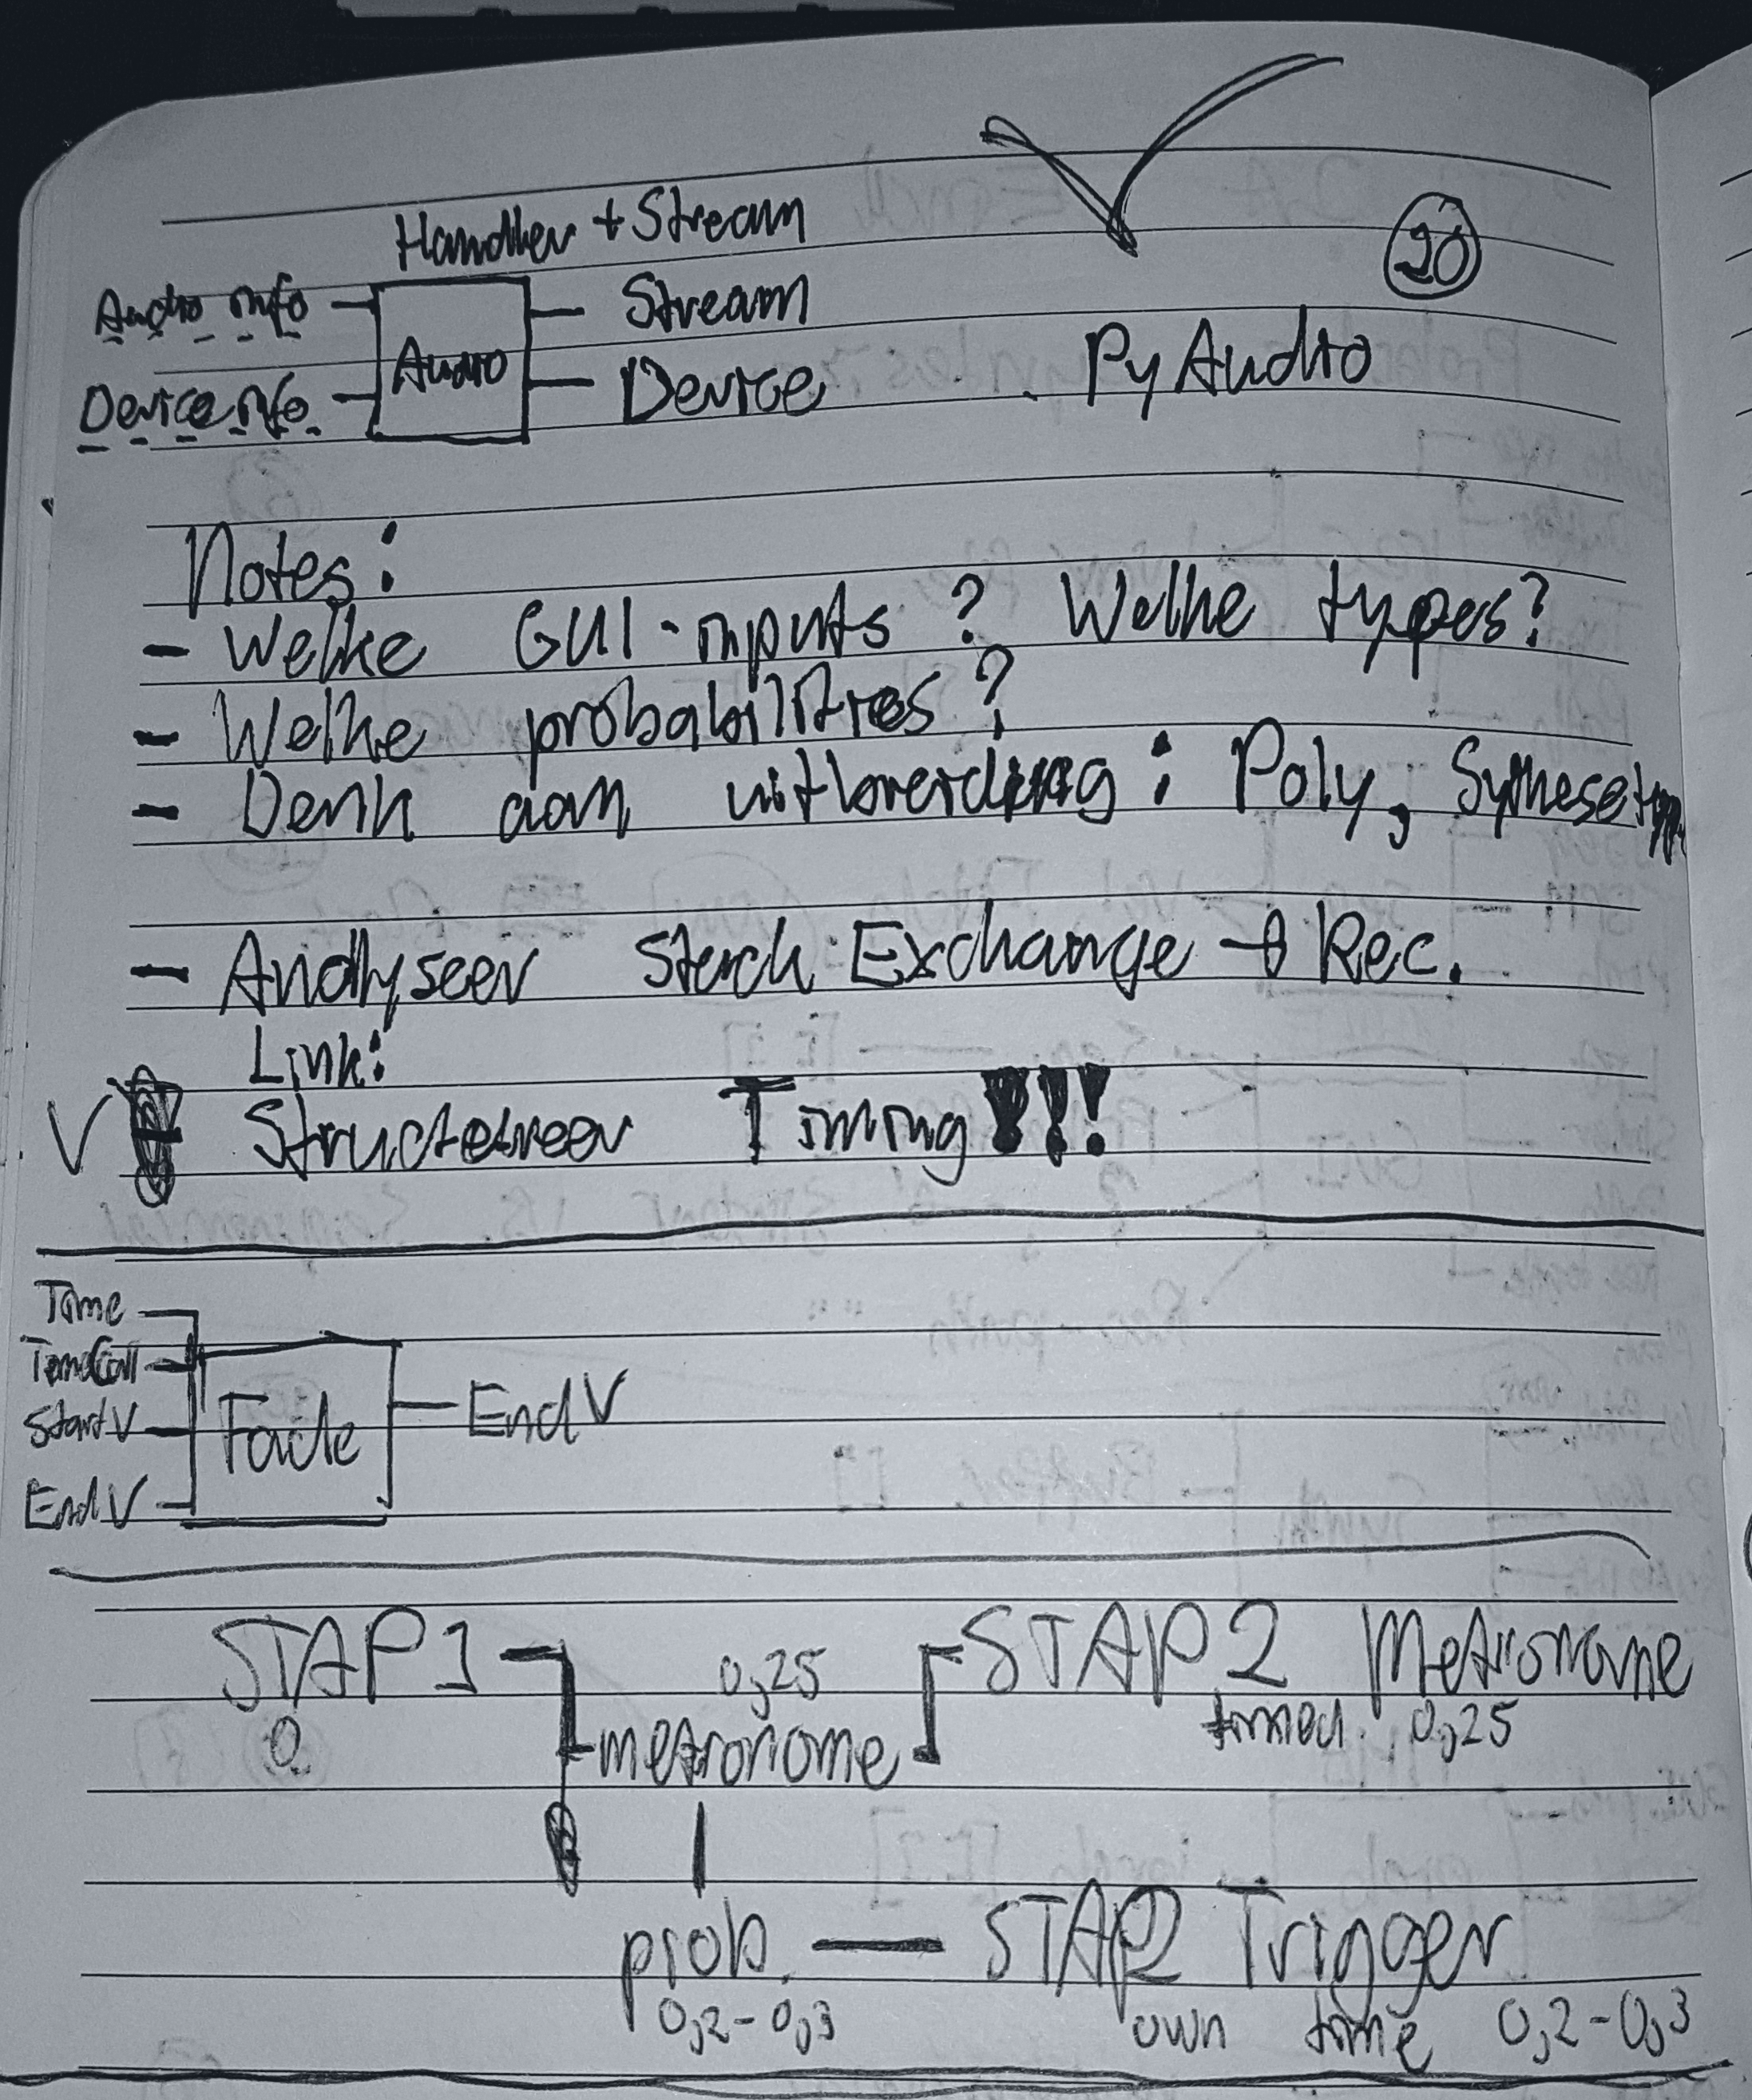 Handler + Stream
20
Audio info
Audio
Stream
Device info
Device
PyAudio
Notes:
- Welke GUI-inputs? Welke types?
- Welke probabilities?
- Denk aan uitbreiding: Poly,
- Analyseer Stack Exchange → Rec.
Link:
V Structureer Timing!!!
Time
StartV
EndV
Fade
EndV
STAP 1
0
0,25
metronome
STAP 2 Metronome
timed 0,25
prob.
0,2-0,3
STAP2 Trigger
own time 0,2-0,3